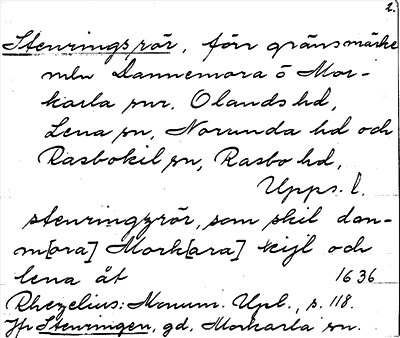 2.
Stenringsrör, förr gränsmärke
mln Dannemora o Mor-
karla snr. Olands hd,
Lena sn, Norunda hd och
Rasbokil sn, Rasbo hd,
Upps. l.
stenringzrör, som skil dan-
m[ora] Mork[ara] kijl och
lena åt 1636
Rhezelius: Monum. Upl., s. 118.
Jfr Stenringen, gd, Morkarla sn.